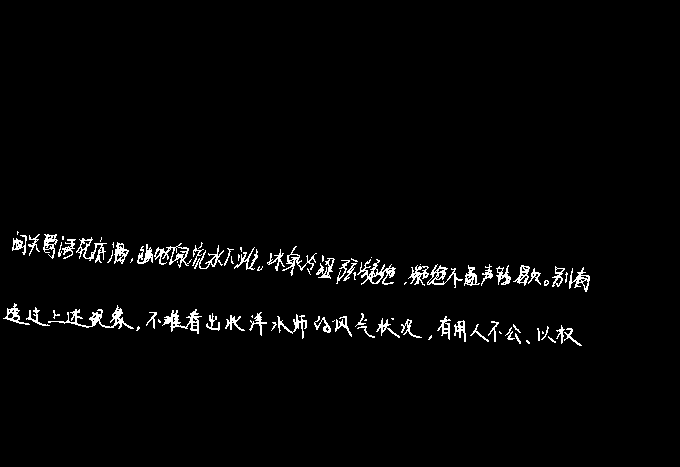 间关莺语花底滑，幽咽泉流水下滩。冰泉冷涩弦凝绝，凝绝不通声暂歇。别有
透过上述现象，不难看出北洋水师的风气状况，有用人不公、以权